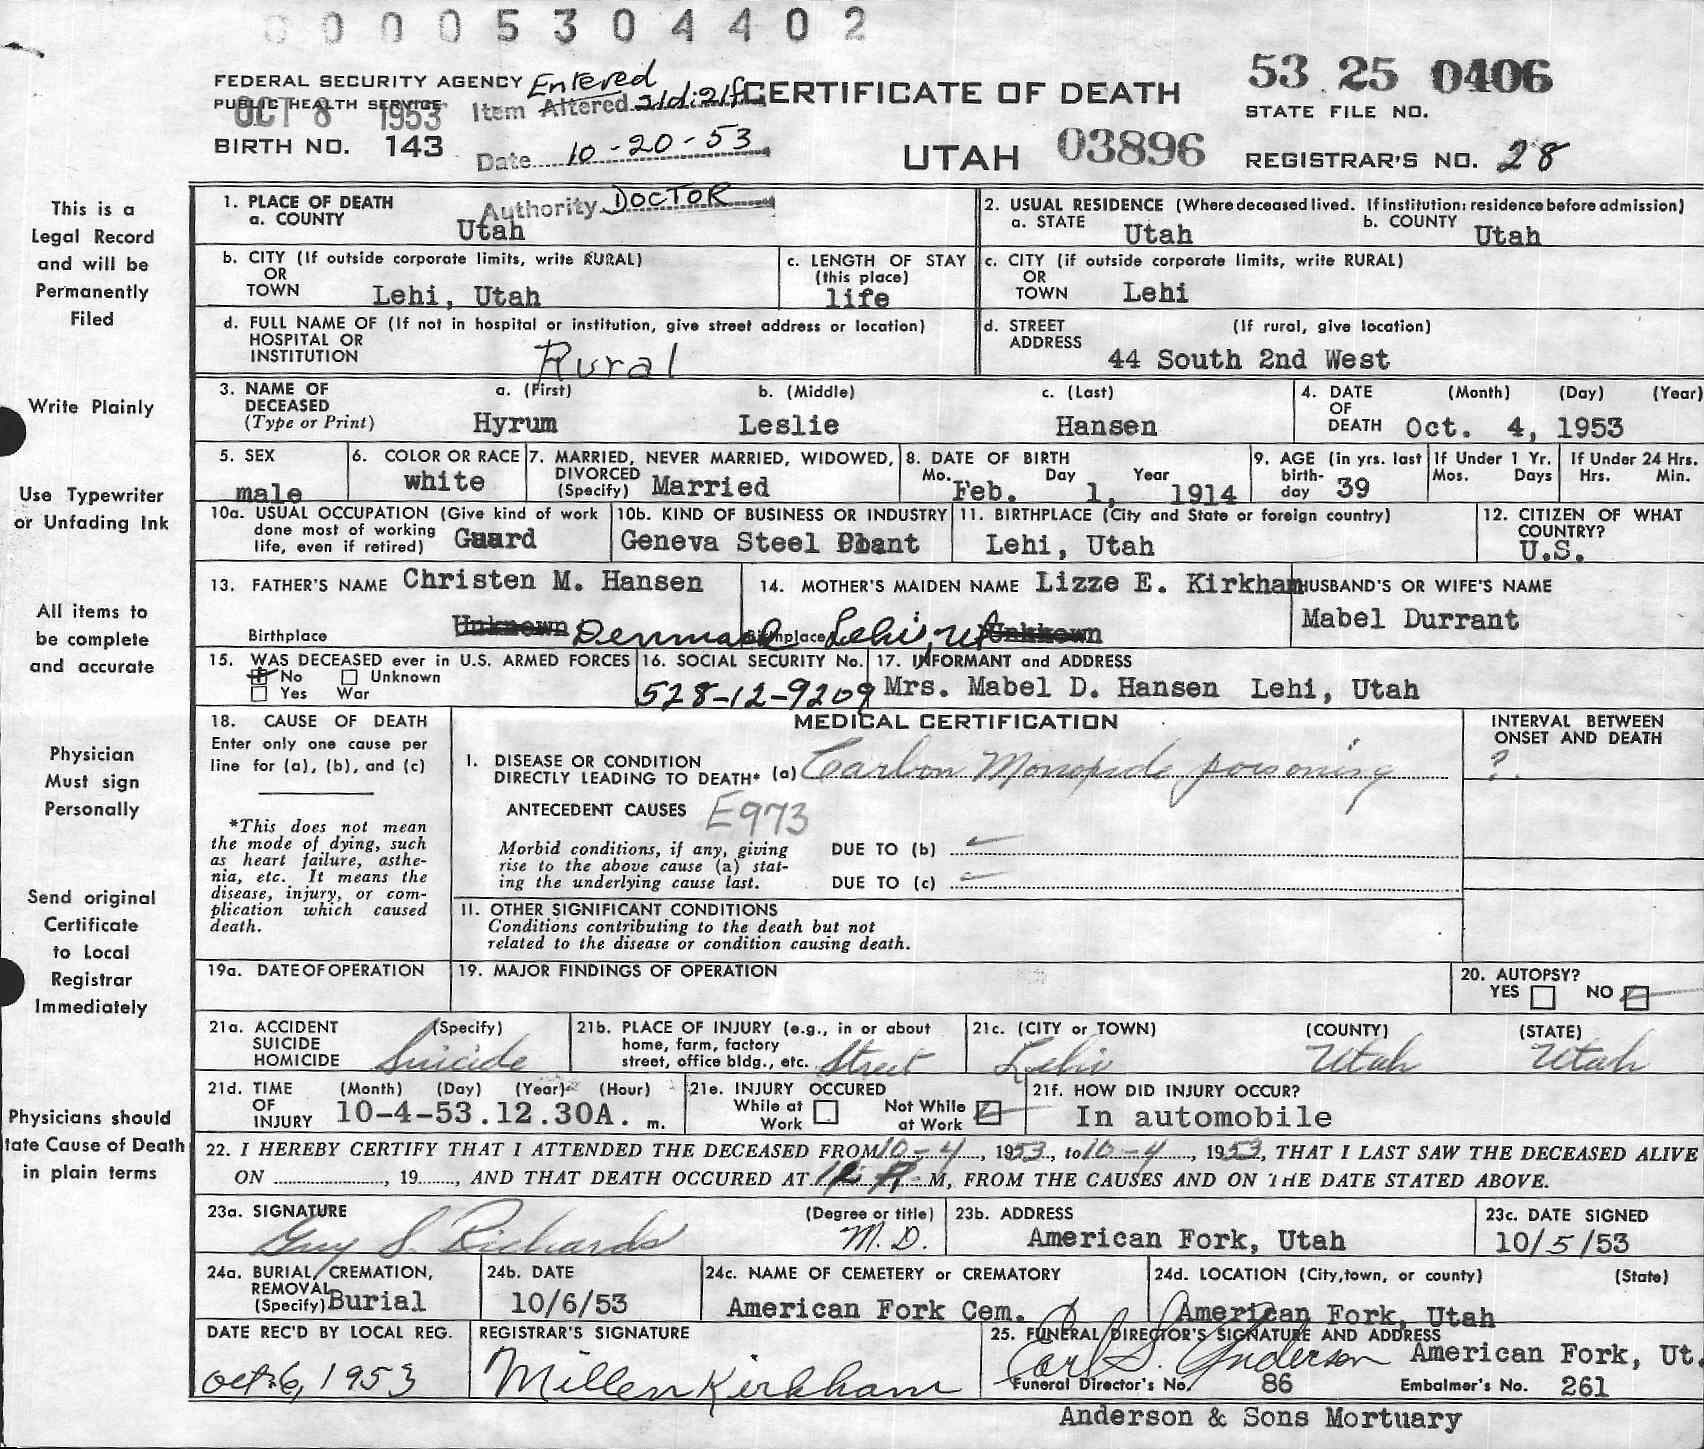 0 0 0 0 5 3 0 4 4 0 2
FEDERAL SECURITY AGENCY
PUBLIC HEALTH SERVICE
OCT 8 1953
BIRTH NO. 143
Entered
Item Altered 21d; 21f
Date 10-20-53
Authority DOCTOR
CERTIFICATE OF DEATH
UTAH 03896
53 25 0406
STATE FILE NO.
REGISTRAR'S NO. 28
This is a
Legal Record
and will be
Permanently
Filed
Write Plainly
Use Typewriter
or Unfading Ink
All items to
be complete
and accurate
Physician
Must sign
Personally
Send original
Certificate
to Local
Registrar
Immediately
Physicians should
tate Cause of Death
in plain terms
1. PLACE OF DEATH
a. COUNTY
Utah
2. USUAL RESIDENCE (Where deceased lived. If institution: residence before admission)
a. STATE Utah b. COUNTY Utah
b. CITY (If outside corporate limits, write RURAL)
OR
TOWN Lehi, Utah
c. LENGTH OF STAY
(this place)
life
c. CITY (if outside corporate limits, write RURAL)
OR
TOWN Lehi
d. FULL NAME OF (If not in hospital or institution, give street address or location)
HOSPITAL OR
INSTITUTION Rural
d. STREET (If rural, give location)
ADDRESS
44 South 2nd West
3. NAME OF a. (First) b. (Middle) c. (Last)
DECEASED
(Type or Print) Hyrum Leslie Hansen
4. DATE (Month) (Day) (Year)
OF
DEATH Oct. 4, 1953
5. SEX
male
6. COLOR OR RACE
white
7. MARRIED, NEVER MARRIED, WIDOWED,
DIVORCED
(Specify) Married
8. DATE OF BIRTH
Mo. Day Year
Feb. 1, 1914
9. AGE (in yrs. last
birth-
day 39
If Under 1 Yr.
Mos. Days
If Under 24 Hrs.
Hrs. Min.
10a. USUAL OCCUPATION (Give kind of work
done most of working
life, even if retired) Guard
10b. KIND OF BUSINESS OR INDUSTRY
Geneva Steel Plant
11. BIRTHPLACE (City and State or foreign country)
Lehi, Utah
12. CITIZEN OF WHAT
COUNTRY?
U.S.
13. FATHER'S NAME Christen M. Hansen
Birthplace Unknown Denmark
14. MOTHER'S MAIDEN NAME Lizze E. Kirkham
Birthplace Lehi, Ut Unknown
HUSBAND'S OR WIFE'S NAME
Mabel Durrant
15. WAS DECEASED ever in U.S. ARMED FORCES
No Unknown
Yes War
16. SOCIAL SECURITY No.
528-12-9209
17. INFORMANT and ADDRESS
Mrs. Mabel D. Hansen Lehi, Utah
18. CAUSE OF DEATH
Enter only one cause per
line for (a), (b), and (c)
*This does not mean
the mode of dying, such
as heart failure, asthe-
nia, etc. It means the
disease, injury, or com-
plication which caused
death.
MEDICAL CERTIFICATION
I. DISEASE OR CONDITION
DIRECTLY LEADING TO DEATH* (a) Carbon Monoxide poisoning
ANTECEDENT CAUSES E973
Morbid conditions, if any, giving
rise to the above cause (a) stat-
ing the underlying cause last.
DUE TO (b)
DUE TO (c)
11. OTHER SIGNIFICANT CONDITIONS
Conditions contributing to the death but not
related to the disease or condition causing death.
INTERVAL BETWEEN
ONSET AND DEATH
?
19a. DATE OF OPERATION
19. MAJOR FINDINGS OF OPERATION
20. AUTOPSY?
YES NO
21a. ACCIDENT (Specify)
SUICIDE
HOMICIDE Suicide
21b. PLACE OF INJURY (e.g., in or about
home, farm, factory
street, office bldg., etc. Street
21c. (CITY or TOWN) (COUNTY) (STATE)
Lehi Utah Utah
21d. TIME (Month) (Day) (Year) (Hour)
OF
INJURY 10-4-53.12.30A. m.
21e. INJURY OCCURED
While at Work Not While at Work
21f. HOW DID INJURY OCCUR?
In automobile
22. I HEREBY CERTIFY THAT I ATTENDED THE DECEASED FROM 10-4, 1953, to 10-4, 1953, THAT I LAST SAW THE DECEASED ALIVE
ON , 19 , AND THAT DEATH OCCURED AT 12 A M, FROM THE CAUSES AND ON THE DATE STATED ABOVE.
23a. SIGNATURE (Degree or title)
Guy S. Richards M.D.
23b. ADDRESS
American Fork, Utah
23c. DATE SIGNED
10/5/53
24a. BURIAL, CREMATION,
REMOVAL
(Specify) Burial
24b. DATE
10/6/53
24c. NAME OF CEMETERY or CREMATORY
American Fork Cem.
24d. LOCATION (City, town, or county) (State)
American Fork, Utah
DATE REC'D BY LOCAL REG.
Oct. 6, 1953
REGISTRAR'S SIGNATURE
Millen Kirkham
25. FUNERAL DIRECTOR'S SIGNATURE AND ADDRESS
Carl S. Anderson American Fork, Ut.
Funeral Director's No. 86 Embalmer's No. 261
Anderson & Sons Mortuary